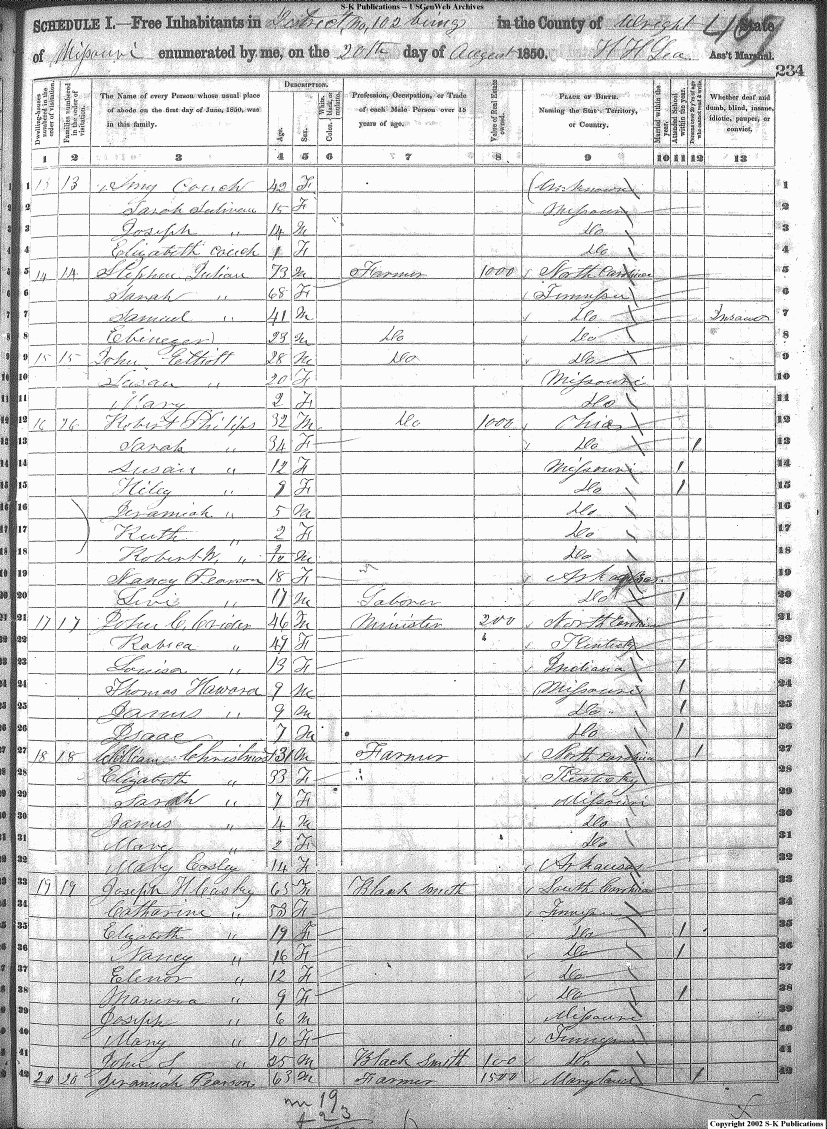 S-K Publications -- USGenWeb Archives
SCHEDULE I.—Free Inhabitants in District No. 102 being in the County of Wright State
of Missouri enumerated by me, on the 20th day of August 1850. H H Lea Ass't Marshal.
234
Dwelling-houses numbered in the order of visitation. Families numbered in the order of visitation. The Name of every Person whose usual place of abode on the first day of June, 1850, was in this family. DESCRIPTION. Age. Sex. Color, White, black, or mulatto. Profession, Occupation, or Trade of each Male Person over 15 years of age. Value of Real Estate owned. PLACE OF BIRTH. Naming the State, Territory, or Country. Married within the year. Attended School within the year. Whether deaf and dumb, blind, insane, idiotic, pauper, or convict.
1 2 3 4 5 6 7 8 9 10 11 12 13
1 13 13 Couch 42 F Unknown 1
2 Sarah 15 F Missouri 2
3 Joseph " 14 M Do 3
4 Elizabeth Couch 1 F Do 4
5 14 14 Stephen Julian 73 M Farmer 1000 North Carolina 5
6 Sarah " 68 F Tennessee 6
7 Samuel " 41 M Do Insane 7
8 Ebineger 23 M Do Do 8
9 15 15 John Elliott 28 M Do Do 9
10 Susan " 20 F Missouri 10
11 Mary 2 F Do 11
12 16 26 Robert Philips 32 M Do 1000 Ohio 12
13 Sarah " 34 F Do 1 13
14 Susan " 12 F Missouri 1 14
15 " 9 F Do 1 15
16 Jeramiah " 5 M Do 16
17 Ruth " 2 F Do 17
18 Robert W. " M Do 18
19 Nancy Pearson 18 F Arkansas 19
20 Levi " 17 M Laborer Do 1 20
21 17 17 John C. Crider 46 M Minister 200 North Carolina 21
22 " 49 F Kentucky 22
23 Louisa " 13 F Indiana 1 23
24 Thomas Haward 9 M Missouri 1 24
25 James " 9 M Do 1 25
26 Isaac 7 M Do 1 26
27 18 18 William Christmas 31 M Farmer North Carolina 1 27
28 Elizabeth " 33 F Kentucky 28
29 Sarah " 7 F Missouri 29
30 James " 4 M Do 30
31 Mary " 2 F Do 31
32 Mary Cosley 14 F Arkansas 32
33 19 19 Joseph 65 M Black Smith South Carolina 33
34 Catharine " 58 F Tennessee 34
35 Elizabeth " 19 F Do 1 35
36 Nancy " 16 F Do 1 36
37 Elenor " 12 F Do 37
38 Manerva " 9 F Do 1 38
39 Joseph " 6 M Missouri 39
40 Mary " 10 F Tennessee 40
41 John S. " 25 M Black Smith 100 Do 41
42 20 20 Jeramiah Pearson 63 M Farmer 1500 Maryland 1 42
19
23
Copyright 2002 S-K Publications